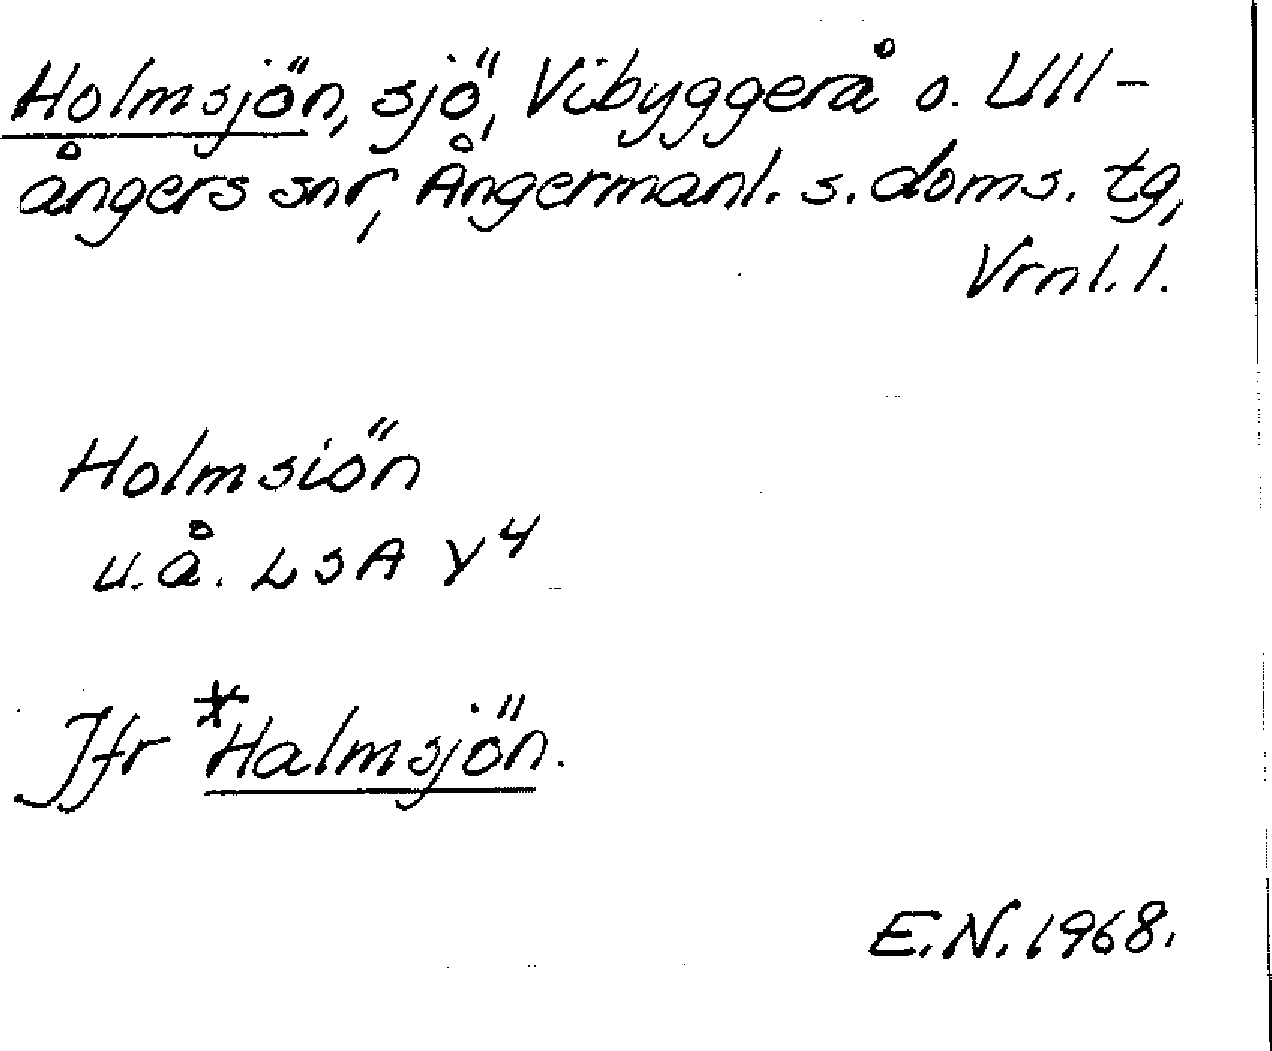 Holmsjön, sjö, Vibyggerå o. Ull-
ångers snr, Ångermanl. s. doms. tg,
Vrnl. l.
Holmsiön
u.å. LSA Y4
Jfr *Halmsjön.
E.N. 1968.